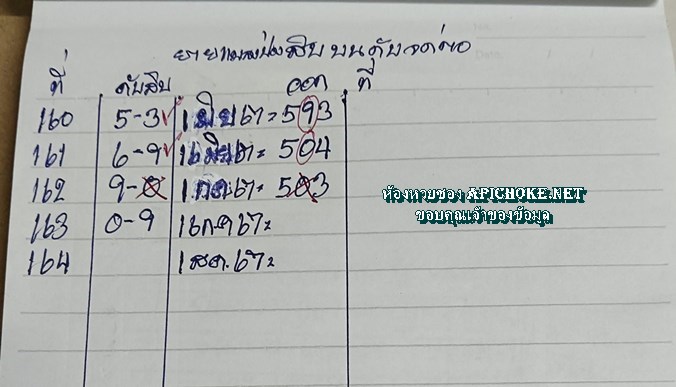 ที่ ดับสิบ ออก ที่
160 5-3 1 มิย 67 = 593
161 6-9 16 มิย 67 = 504
162 9-0 1 กค. 67 = 503
163 0-9 16 ก.ค 67 =
164 1 สค. 67 =
ห้องหวยซอง APICHOKE.NET
ขอบคุณเจ้าของข้อมูล